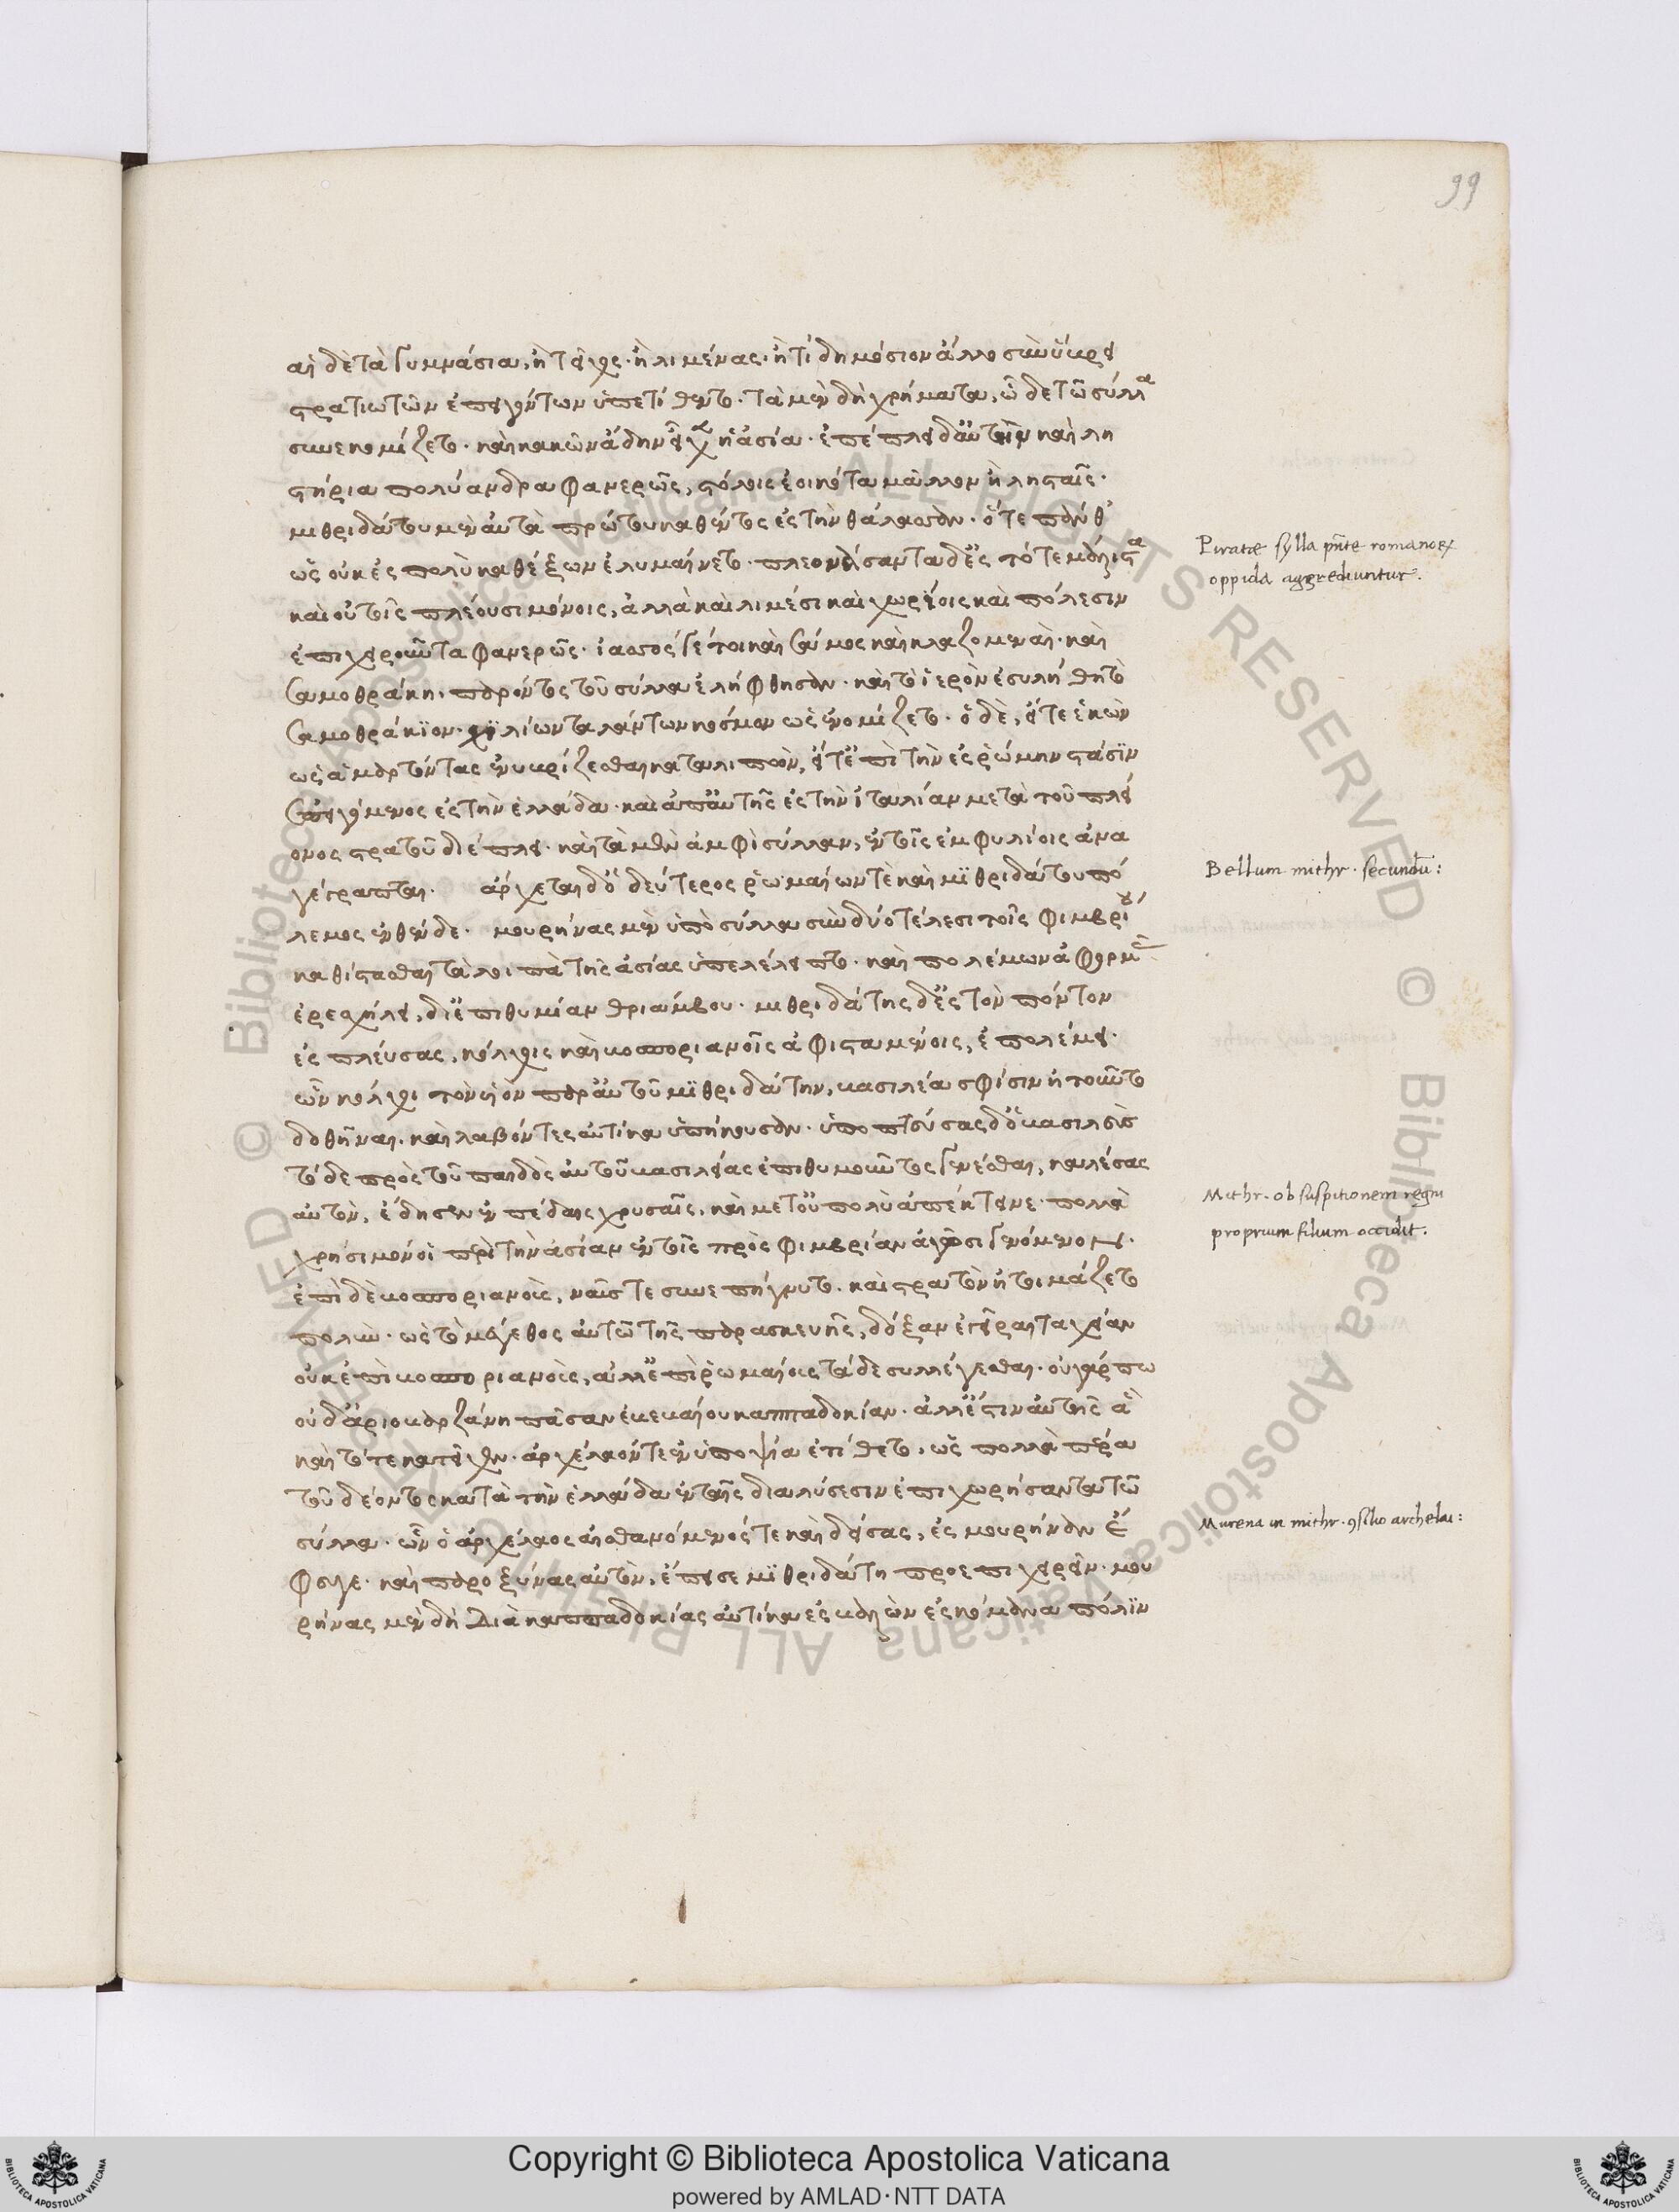 αἱ δὲ τὰ γυμνάσια, ἢ τεῖχος· ἢ λιμένας· ἤ τι δημόσιον ἄλλο σὺν ὕβρει
στρατιωτῶν ἐπειγόντων ὑπετίθεντο· τὰ μὲν δὴ χρήματα, ὧδε τῶ σύλλα
συνεκομίζετο· καὶ κακῶν ἄδην εἶχ ἡ ἀσία· ἐπέπλει δ' αὐτὴν καὶ λη
στήρια πολύανδρα φανερῶς, στόλοις ἐοικότα μᾶλλον ἢ λησταῖς·
μιθριδάτου μὲν αὐτὰ πρώτου καθέντος ἐς τὴν θάλασσαν· ὅτε πάνθ'
ὡς οὐκ ἐς πολὺ καθέξων ἐλυμαίνετο· πλεονάσαντα δ' ἐς τότε μάλιστα
καὶ οὐ τοῖς πλέουσι μόνοις, ἀλλὰ καὶ λιμέσι καὶ χωρίοις καὶ πόλεσιν
ἐπιχειροῦντα φανερῶς· ἰασσός γέ τοι καὶ σάμος καὶ κλαζομεναὶ· καὶ
σαμοθράκη, παρόντος τοῦ σύλλα ἐλήφθησαν· καὶ τὸ ἱερὸν ἐσυλήθη τὸ
σαμοθράκϊον· χϊλίων ταλάντων κόσμον ὡς ἐνομίζετο· ὁ δὲ, εἴτε ἑκὼν
ὡς ἁμαρτόντας ἐνυβρίζεσθαι καταλιπὼν, εἴτ' ἐπὶ τὴν ἐς ῥώμην στάσϊν
ἐπειγόμενος ἐς τὴν ἑλλάδα· καὶ ἀπ' αὐτῆς ἐς τὴν ἰταλίαν μετὰ τοῦ πλεί
ονος στρατοῦ διέπλει· καὶ τὰ μὲν ἀμφὶ σύλλαν, ἐν τοῖς ἐμφυλίοις ἀνα
γέγραπται· ἄρχεται δ' ὁ δεύτερος ῥωμαίων τὲ καὶ μϊθριδάτου πό
λεμος ἐνθένδε· μουρήνας μὲν ὑπὸ σύλλα σὺν δύο τέλεσι τοῖς φιμβρίου
καθίστασθαι τὰ λοιπὰ τῆς ἀσίας ὑπελέλειπτο· καὶ πολέμων ἀφορμὰς
ἐρεσχήλει, δι' ἐπιθυμίαν θριάμβου· μιθριδάτης δ' ἐς τὸν πόντον
ἐς πλεύσας, κόλχοις καὶ βοσποριανοῖς ἀφισταμένοις, ἐπολέμει·
ὧν κόλχοι τὸν υἱὸν παρ' αὐτοῦ μϊθριδάτην, βασιλέα σφίσιν ἠτοῦντο
δοθῆναι· καὶ λαβόντες αὐτίκα ὑπήκουσαν· ὑποπτεύσας δ' ὁ βασιλεὺς
τόδε πρὸς τοῦ παιδὸς αὐτοῦ βασιλείας ἐπιθυμοῦντος γενέσθαι, καλέσας
αὐτὸν, ἔδησεν ἐν πέδαις χρυσαῖς, καὶ μετ' οὐ πολὺ ἀπέκτεινε· πολλὰ
χρήσιμόν οἱ περὶ τὴν ἀσίαν ἐν τοῖς πρὸς φιμβρίαν ἀγῶσι γενόμενον·
ἐπὶ δὲ βοσποριανοὺς, ναῦς τε συνεπήγνυτο· καὶ στρατὸν ἡτοιμάζετο
πολὺν· ὡς τὸ μέγεθος αὐτῶ τῆς παρασκευῆς, δόξαν ἐγεῖραι ταχεῖαν
οὐκ ἐπὶ βοσποριανοῖς, ἀλλ' ἐπὶ ῥωμαίοις τάδε συλλέγεσθαι· οὐ γάρ πω
οὐδ' ἀριοβαρζάνη πᾶσαν ἐβεβαίου καππαδοκίαν· ἀλλ' ἔστιν αὐτῆς ἃ
καὶ τότε κατεῖχεν· ἀρχέλαόν τε ἐν ὑποψία ἐτίθετο, ὡς πολλὰ πέρα
τοῦ δέοντος κατὰ τὴν ἑλλάδα ἐν ταῖς διαλύσεσιν ἐπιχωρήσαντα τῶ
σύλλα· ὧν ὁ ἀρχέλαος αἰσθανόμενός τε καὶ δείσας, ἐς μουρήναν ἔ
φυγε· καὶ παροξύνας αὐτὸν, ἔπεισε μϊθριδάτη προεπιχειρεῖν· μου
ρήνας μὲν δὴ διὰ καππαδοκίας αὐτίκα ἐσβαλὼν ἐς κόμανα πόλϊν
99
Piratæ sylla pnte romanoꝝ
oppida aggrediuntur.
Bellum mithr. secundū:
Mithr. ob suspitionem regni
proprium filium occidit.
Murena in mithr. ꝯsilio archelai:
© Biblioteca Apostolica Vaticana ALL RIGHTS RESERVED
© Biblioteca Apostolica Vaticana ALL RIGHTS RESERVED
Copyright © Biblioteca Apostolica Vaticana
powered by AMLAD·NTT DATA
BIBLIOTECA APOSTOLICA VATICANA
BIBLIOTECA APOSTOLICA VATICANA